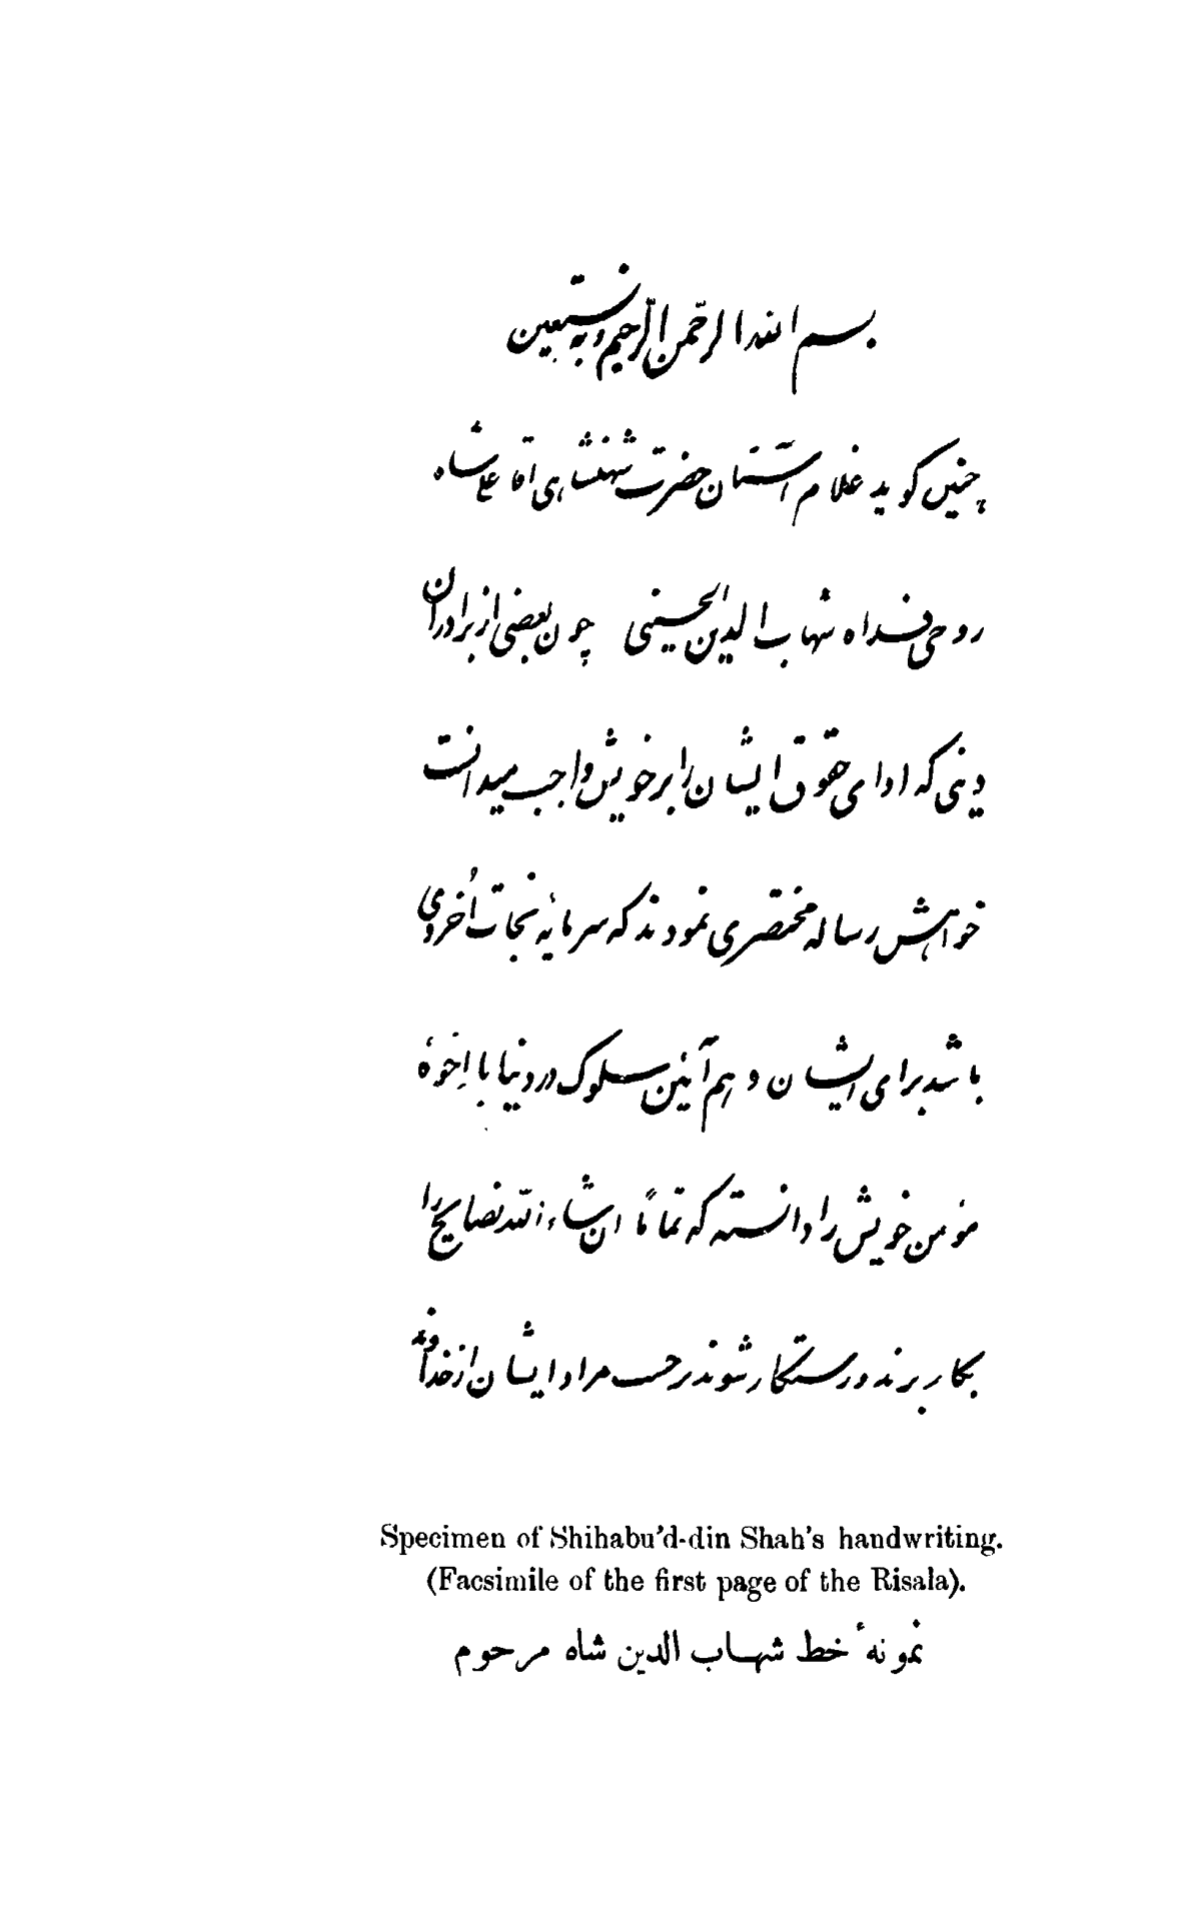 بسم الله الرحمن الرحیم و به نستعین
چنین کوید غلام آستان حضرت شهنشاهی آقا علی شاه
روحی فداه شهاب الدین الحسینی چون بعضی از برادران
دینی که ادای حقوق ایشان را بر خویش واجب میدانست
خواهش رساله مختصری نمودند که سرمایهٔ نجات اُخروی
باشد برای ایشان و هم آئین سلوک در دنیا با اِخوهٔ
مؤمن خویش را دانسته که تماماً ان شاء الله نصایح را
بکار برند و رستکار شوند بر حسب مراد ایشان از خداوند
Specimen of Shihabu'd-din Shah's handwriting.
(Facsimile of the first page of the Risala).
نمونهٔ خط شهاب الدین شاه مرحوم